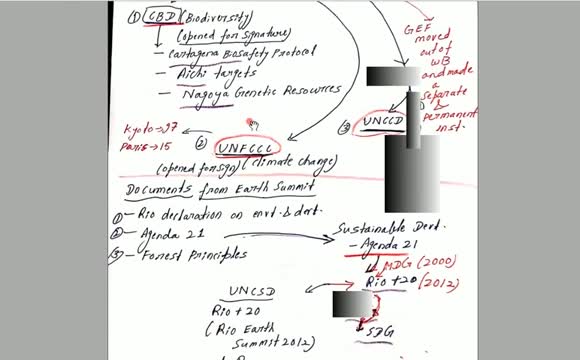 ① CBD (Biodiversity)
(opened for signature)
- Cartagena Biosafety Protocol
- Aichi targets
- Nagoya Genetic Resources
GEF
moved
out of
WB
and made
a
separate
&
permanent
inst.
③ UNCCD
Kyoto → 97
Paris → 15
② UNFCCC
(opened for sign) (climate change)
Documents from Earth Summit
① - Rio declaration on envt. & devt.
② - Agenda 21
③ - Forrest Principles
Sustainable Devt.
- Agenda 21
MDG (2000)
Rio + 20 (2012)
SDG
UNCSD
Rio + 20
(Rio Earth
Summit 2012)